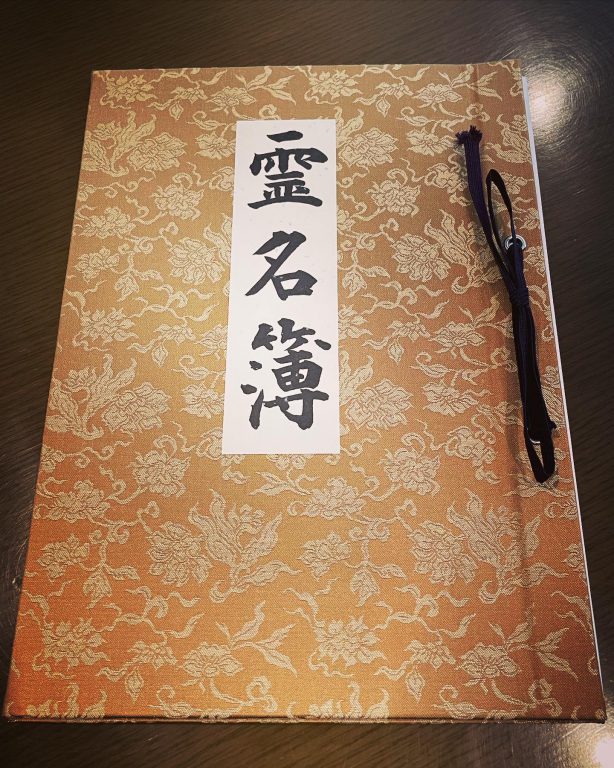 霊名簿